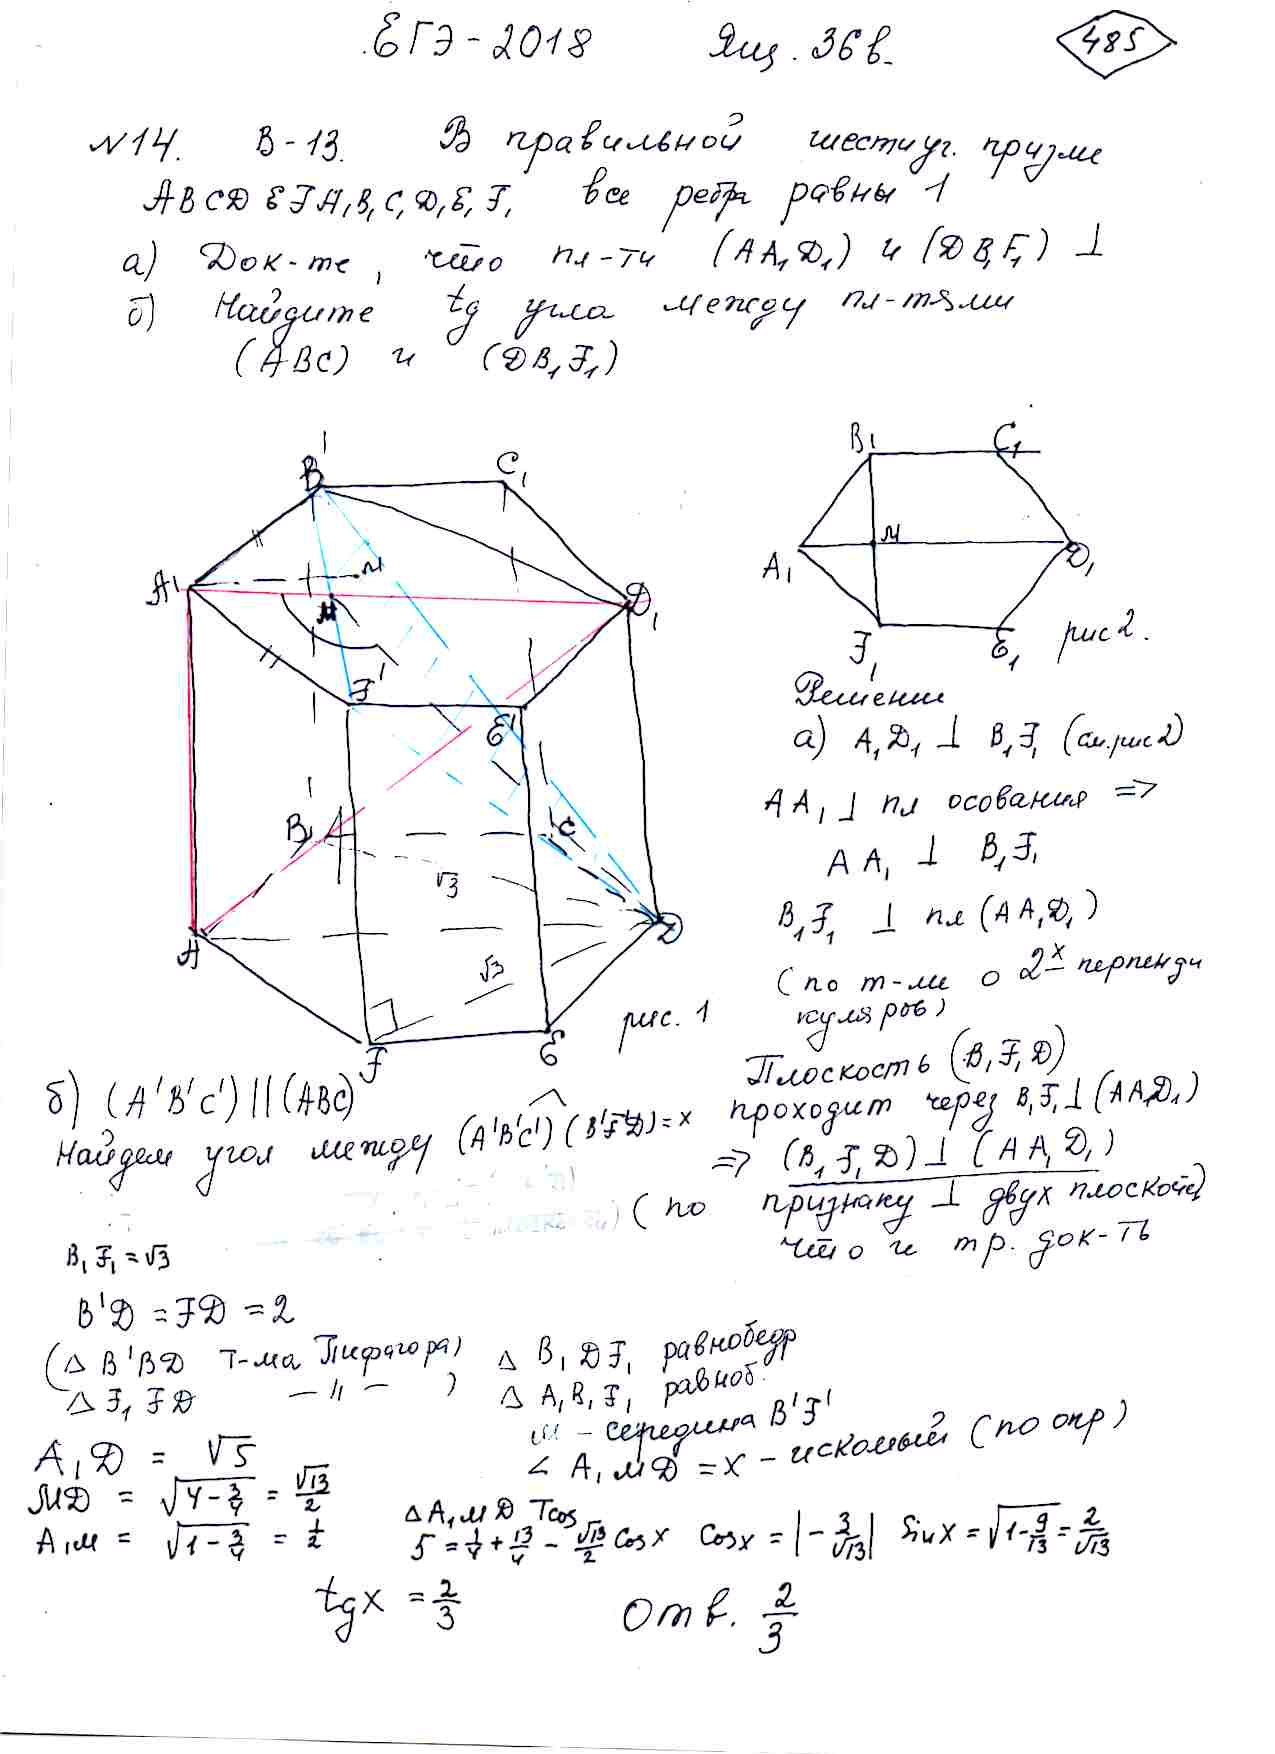 ЕГЭ-2018 Ящ. 36 в. 485
№14. В-13. В правильной шестиуг. призме
ABCDEFA₁B₁C₁D₁E₁F₁ все ребра равны 1
а) Док-те, что пл-ти (AA₁D₁) и (DB₁F₁) ⊥
б) Найдите tg угла между пл-тями
(ABC) и (DB₁F₁)
B'
C₁
A₁
M
M
D₁
F'
E'
B
C
√3
A
D
√3
F
E
рис. 1
B₁ C₁
A₁ M D₁
F₁ E₁
рис 2.
Решение
а) A₁D₁ ⊥ B₁F₁ (см. рис 2)
AA₁ ⊥ пл осования =>
AA₁ ⊥ B₁F₁
B₁F₁ ⊥ пл (AA₁D₁)
(по т-ме о 2х перпенди
куляров)
Плоскость (B₁F₁D)
проходит через B₁F₁ ⊥ (AA₁D₁)
=> (B₁F₁D) ⊥ (AA₁D₁)
(по признаку ⊥ двух плоскостей)
что и тр. док-ть
б) (A'B'C') || (ABC)
Найдем угол между (A'B'C') (B'F'D) = x
B₁F₁ = √3
B'D = FD = 2
(△ B'BD т-ма Пифагора)
△ F₁FD —〃— )
A₁D = √5
MD = √(4-3/4) = √13/2
A₁M = √(1-3/4) = 1/2
△ B₁DF₁ равнобедр
△ A₁B₁F₁ равноб.
M - середина B'F'
∠ A₁MD = x - искомый (по опр)
△A₁MD Tcos
5 = 1/4 + 13/4 - √13/2 cos x cos x = |-3/√13| sin x = √(1-9/13) = 2/√13
tg x = 2/3 Отв. 2/3